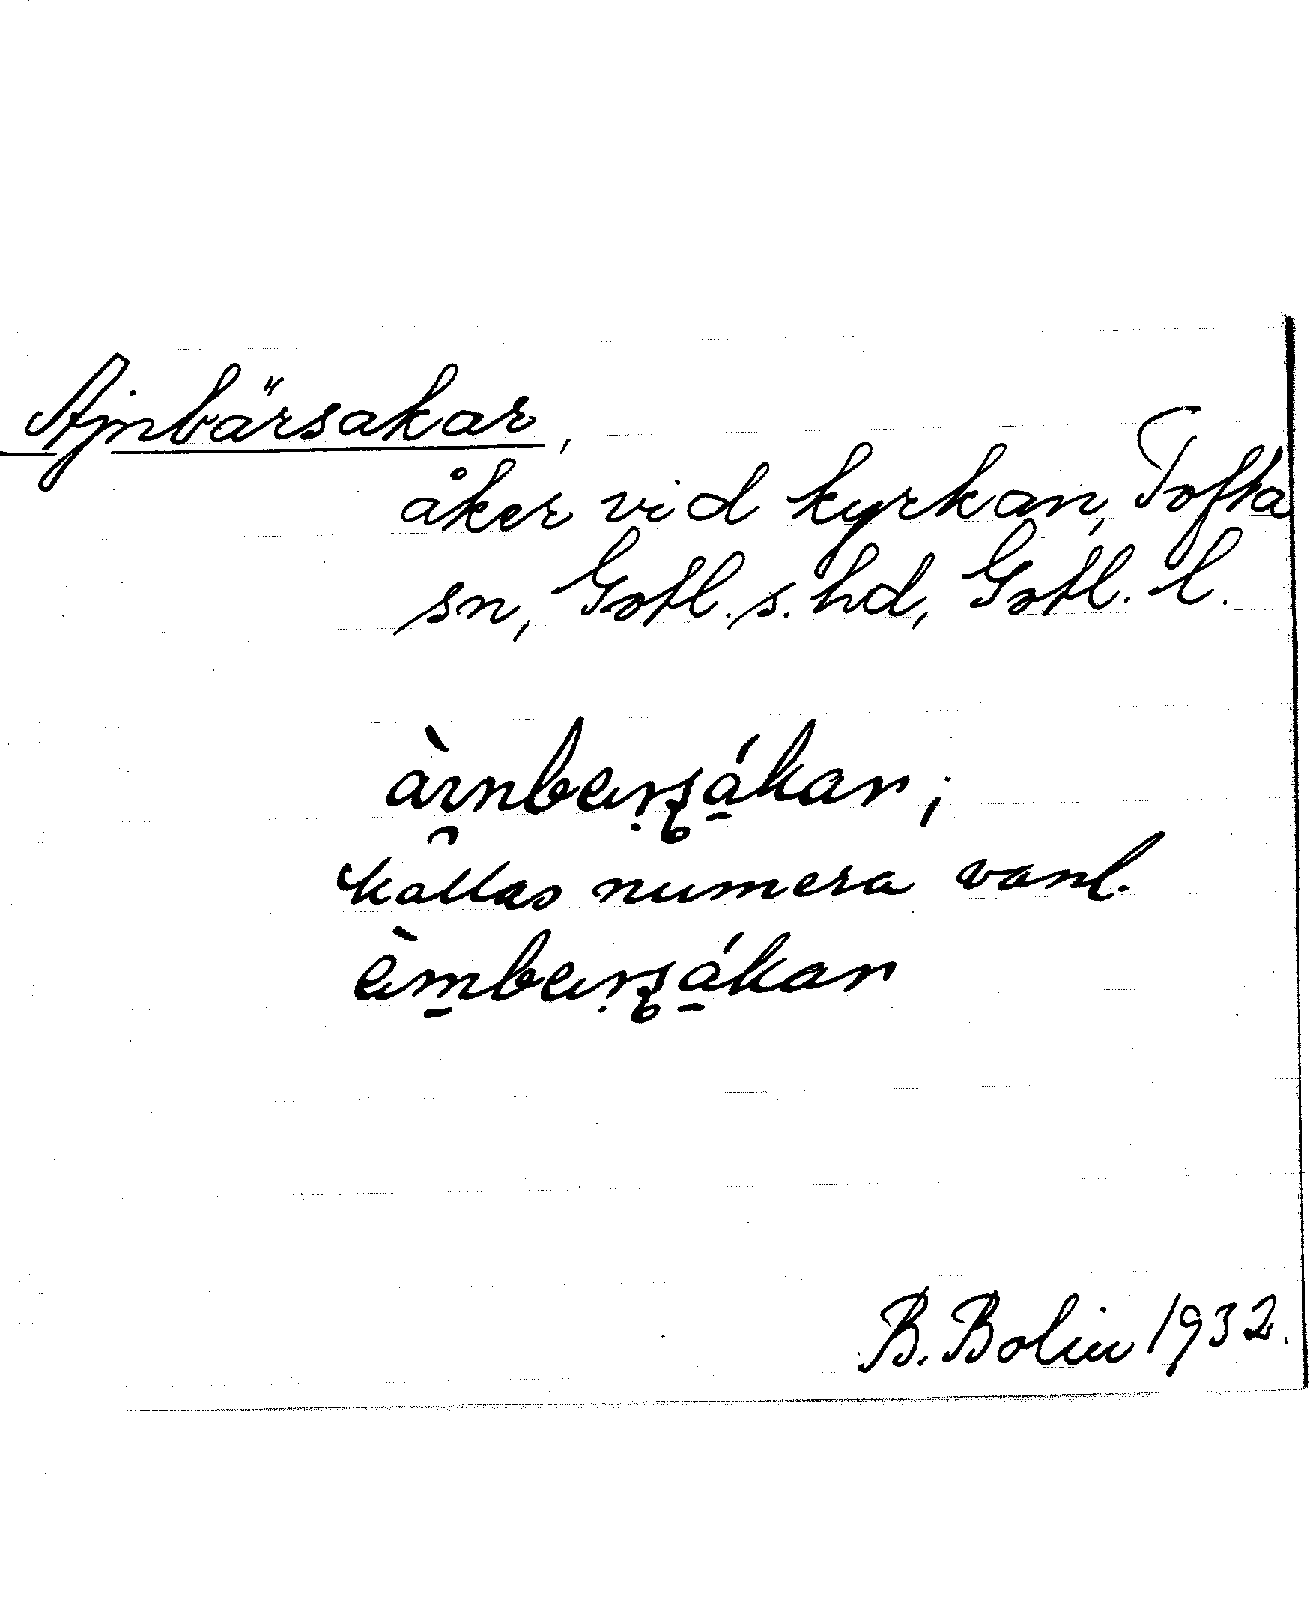 Ajnbärsakar,
åker vid kyrkan, Tofta
sn, Gotl. s. hd, Gotl. l.
kallas numera vanl.
B. Bolin 1932.